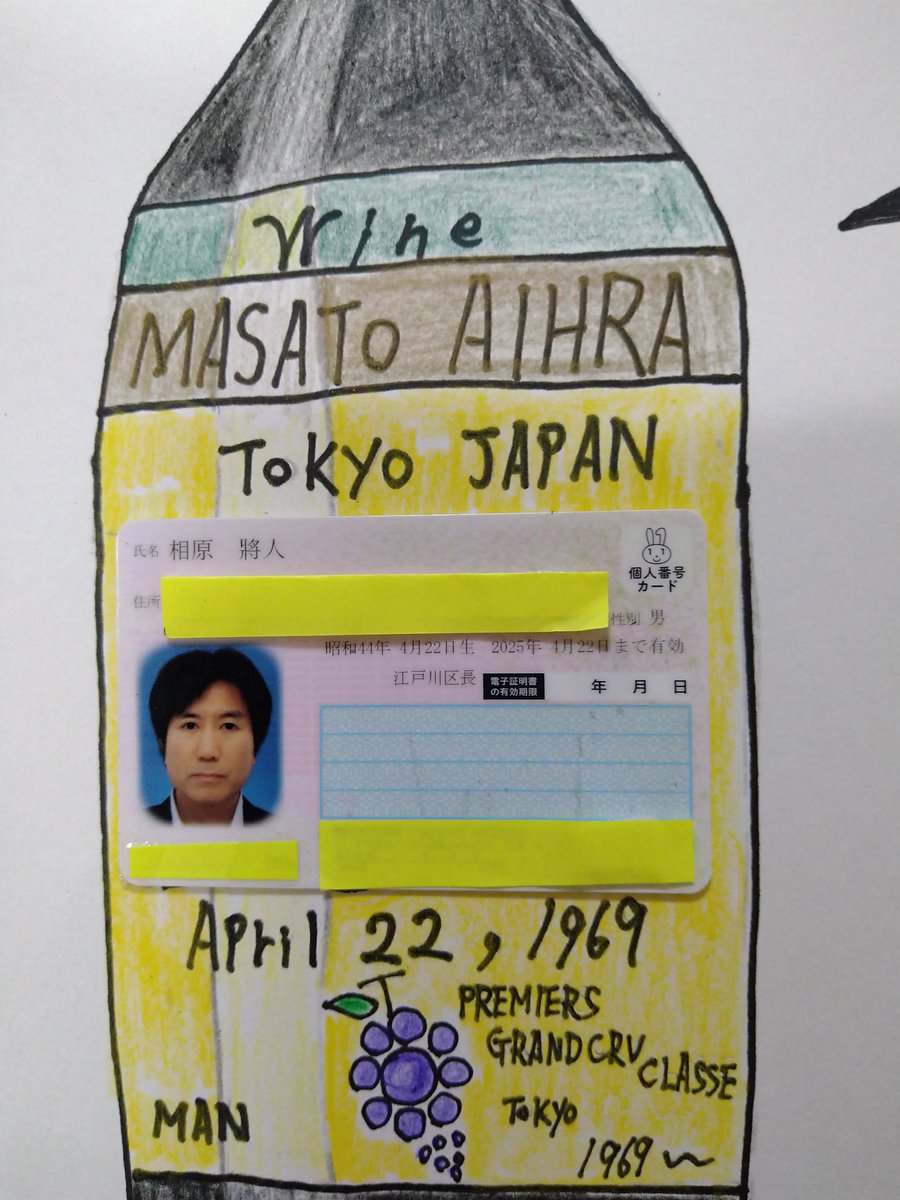 Wine
MASATO AIHRA
TOKYO JAPAN
氏名 相原 將人
個人番号
カード
住所
性別 男
昭和44年 4月22日生 2025年 4月22日まで有効
江戸川区長 電子証明書の有効期限 年 月 日
April 22, 1969
PREMIERS
GRAND CRV
CLASSE
MAN
TOKYO
1969~